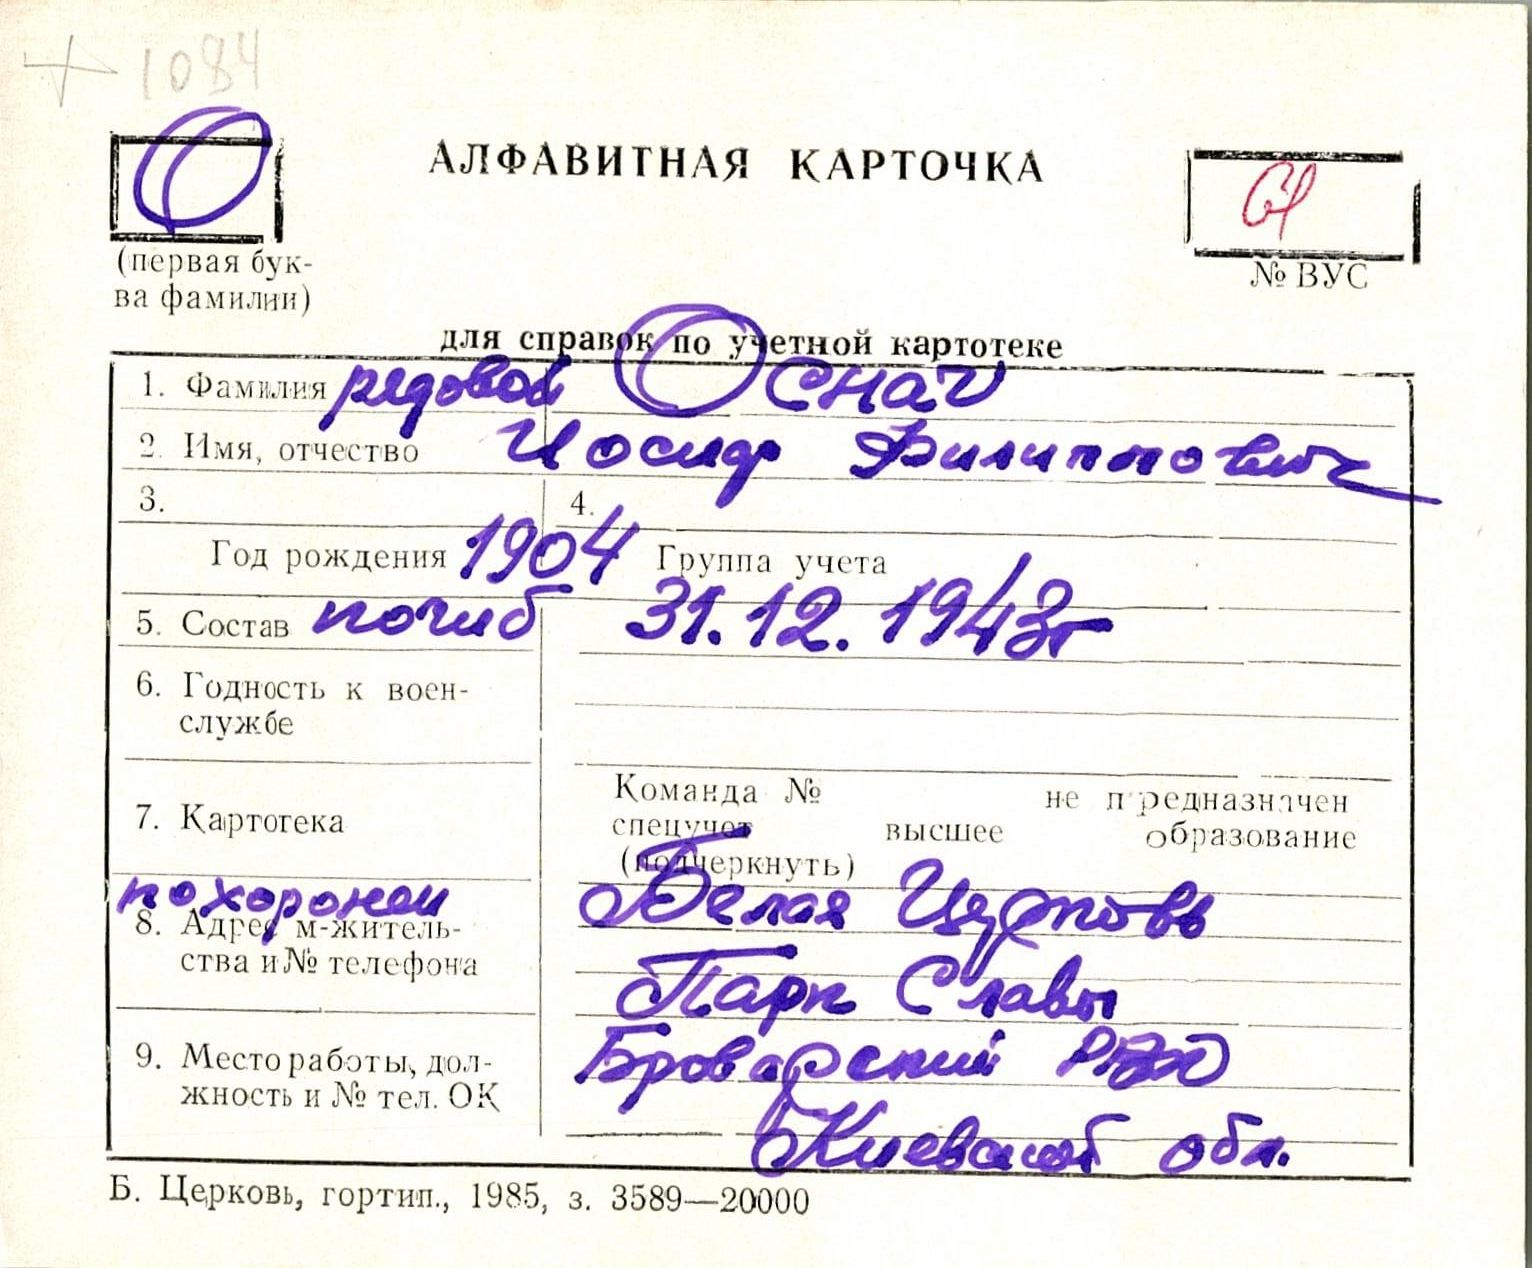 + 1084
О
АЛФАВИТНАЯ КАРТОЧКА
(первая бук-
ва фамилии)
№ ВУС
для справок по учетной картотеке
1. Фамилия рядовой Оснач
2. Имя, отчество Иосиф Филиппович
3.
4.
Год рождения 1904 Группа учета
5. Состав погиб 31.12.1943г
6. Годность к воен-
службе
7. Картотека
Команда № не предназначен
спецучет высшее образование
(подчеркнуть)
похоронен Белая Церковь
8. Адрес м-житель-
ства и № телефона
Парк Славы
9. Место работы, дол-
жность и № тел. ОК
Броварский РВК
Киевской обл.
Б. Церковь, гортип., 1985, з. 3589—20000